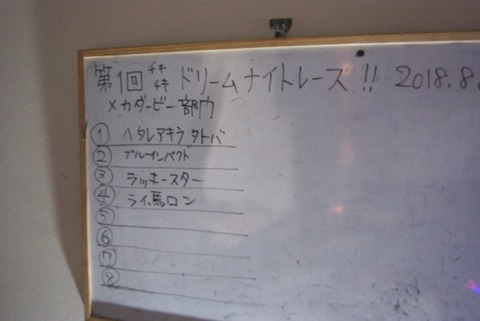 第1回 チキチキ ドリームナイトレース!! 2018.8.
メカダービー部門
① ヘタレアキラタトバ
② ブルーインパクト
③ ラッキースター
④ ライ馬ロン
⑤
⑥
⑦
⑧